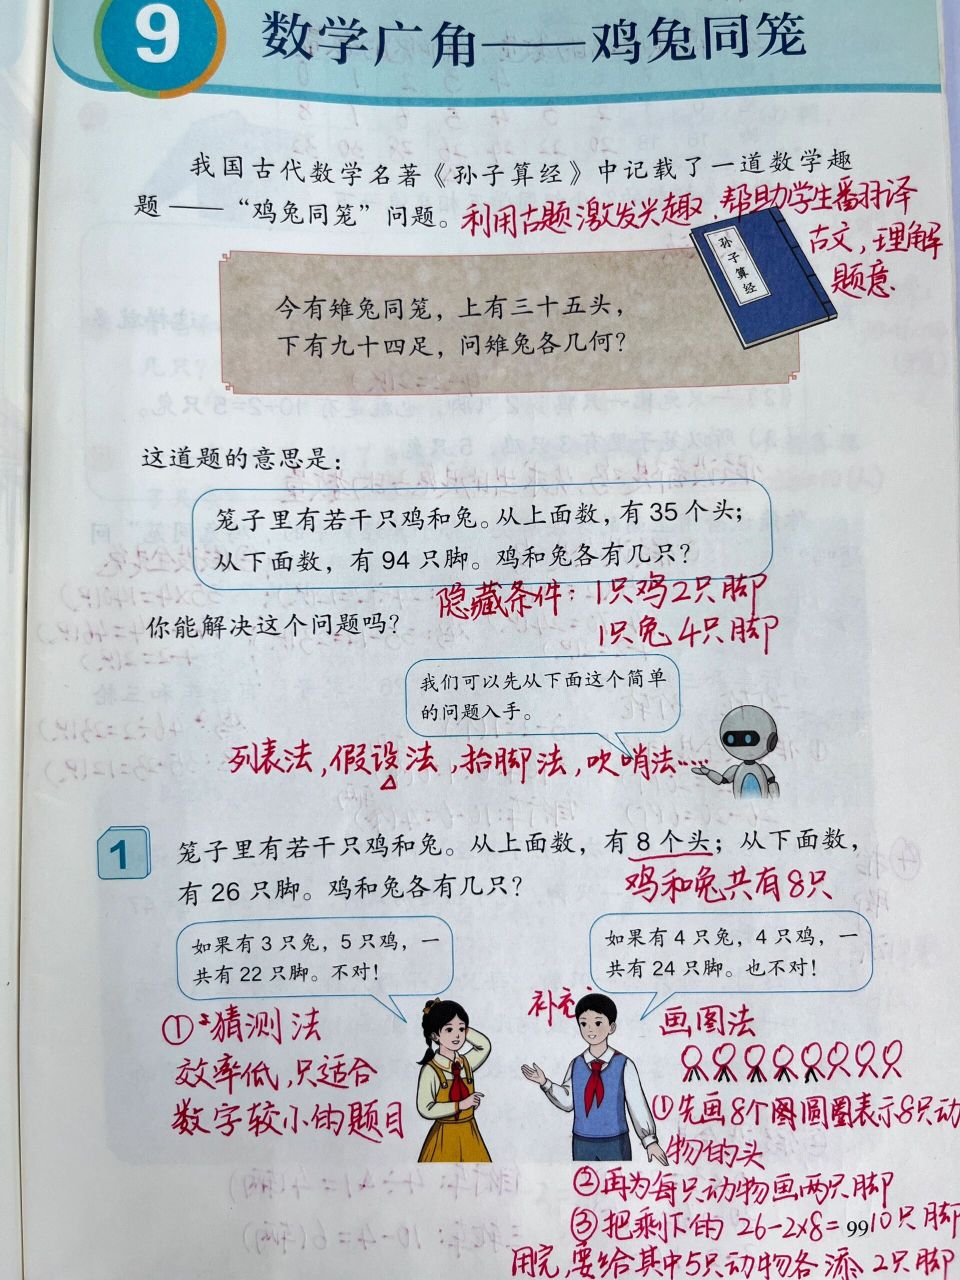 9
数学广角——鸡兔同笼
我国古代数学名著《孙子算经》中记载了一道数学趣
题——“鸡兔同笼”问题。
利用古题激发兴趣，帮助学生翻译
古文，理解
题意.
孙子算经
今有雉兔同笼，上有三十五头，
下有九十四足，问雉兔各几何？
这道题的意思是：
笼子里有若干只鸡和兔。从上面数，有35个头；
从下面数，有 94 只脚。鸡和兔各有几只？
隐藏条件：1只鸡2只脚
1只兔4只脚
你能解决这个问题吗？
我们可以先从下面这个简单
的问题入手。
列表法，假设法，抬脚法，吹哨法……
1
笼子里有若干只鸡和兔。从上面数，有 8 个头；从下面数，
有 26 只脚。鸡和兔各有几只？
鸡和兔共有8只
如果有 3 只兔，5 只鸡，一
共有 22 只脚。不对！
如果有 4 只兔，4 只鸡，一
共有 24 只脚。也不对！
①猜测法
效率低，只适合
数字较小的题目
补充：
画图法
①先画8个圆圈表示8只动
物的头
②再为每只动物画两只脚
③把剩下的 26-2×8=10只脚
用完，要给其中5只动物各添2只脚
99